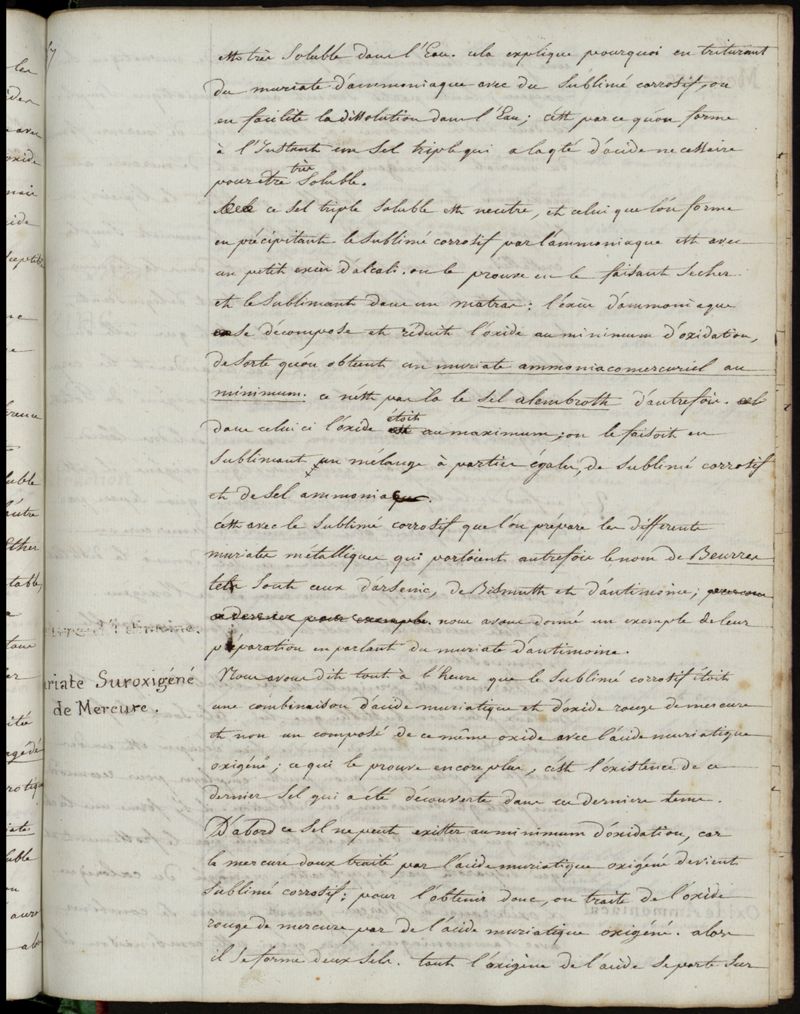 est très soluble dans l'Eau. cela explique pourquoi en triturant
du muriate d'ammoniaque avec du Sublimé corrosif, on
en facilite la dissolution dans l'Eau; c'est parce qu'on forme
à l'Instant un Sel triple qui a la qté d'acide necessaire
pour être très Soluble.
ce Sel triple Soluble est neutre, et celui que l'on forme
en précipitant le Sublimé corrosif par l'ammoniaque est avec
un petit excès d'alcali. on le prouve en le faisant Secher
et le Sublimant dans un matras: l'excès d'ammoniaque
se décompose et réduit l'oxide au minimum d'oxidation,
de Sorte qu'on obtient un muriate ammoniacomercuriel au
minimum. ce n'est pas là le Sel alembroth d'autrefois.
dans celui ci l'oxide étoit au maximum; on le faisoit en
Sublimant un mélange à parties égales, de Sublimé corrosif
et de Sel ammoniaque.
c'est avec le Sublimé corrosif que l'on prépare les differents
muriates métalliques qui portoient autrefois le nom de Beurres
tels Sont ceux d'arsenic, de Bismuth et d'antimoine;
nous avons donné un exemple de leur
préparation en parlant du muriate d'antimoine.
riate Suroxigéné
de Mercure.
Nous avons dit tout à l'heure que le Sublimé corrosif étoit
une combinaison d'acide muriatique et d'oxide rouge de mercure
et non un composé de ce même oxide avec l'acide muriatique
oxigéné; ce qui le prouve encore plus, c'est l'existence de ce
dernier Sel qui a été découverte dans ces derniers tems.
D'abord ce Sel ne peut exister au minimum d'oxidation, car
le mercure doux traité par l'acide muriatique oxigéné devient
Sublimé corrosif; pour l'obtenir donc, on traite de l'oxide
rouge de mercure par de l'acide muriatique oxigéné. alors
il Se forme deux Sels. tout l'oxigène de l'acide Se porte Sur